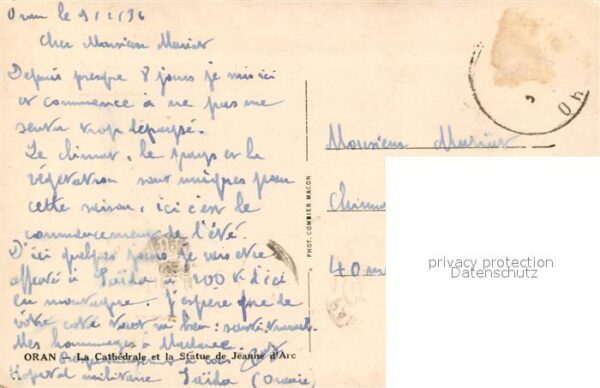 Oran le 9/1/36
Cher Monsieur
Depuis presque 8 jours je suis ici
et commence à ne pas me
sentir trop dépaysé.
Le climat, le pays et la
végétation sont uniques pour
cette saison, ici c'est le
commencement de l'été.
D'ici quelques jours je vais être
affecté à Saïda à 200 K d'ici
en montagne. J'espère que de
votre coté tout va bien
Mes hommages à Madame.
à vous
ORAN - La Cathédrale et la Statue de Jeanne d'Arc
Hopital militaire Saïda (Oranie)
PHOT. COMBIER MACON
Monsieur
40
privacy protection
Datenschutz